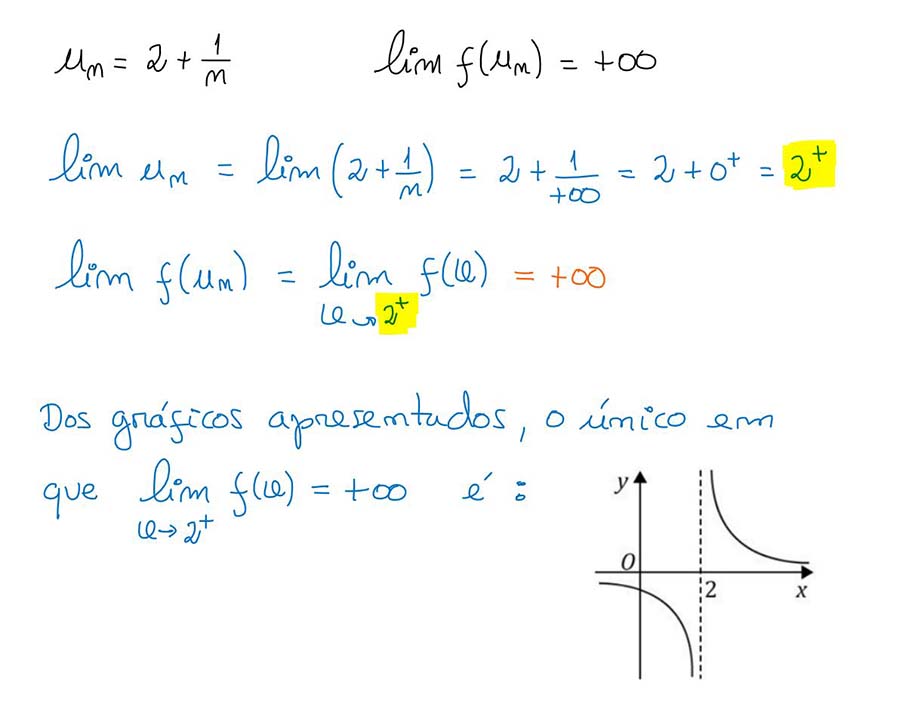 uₙ = 2 + 1/n    lim f(uₙ) = +∞
lim uₙ = lim (2 + 1/n) = 2 + 1/+∞ = 2 + 0⁺ = 2⁺
lim f(uₙ) = lim f(x) = +∞
x → 2⁺
Dos gráficos apresentados, o único em
que lim f(x) = +∞ é :
x → 2⁺
y
O
2
x